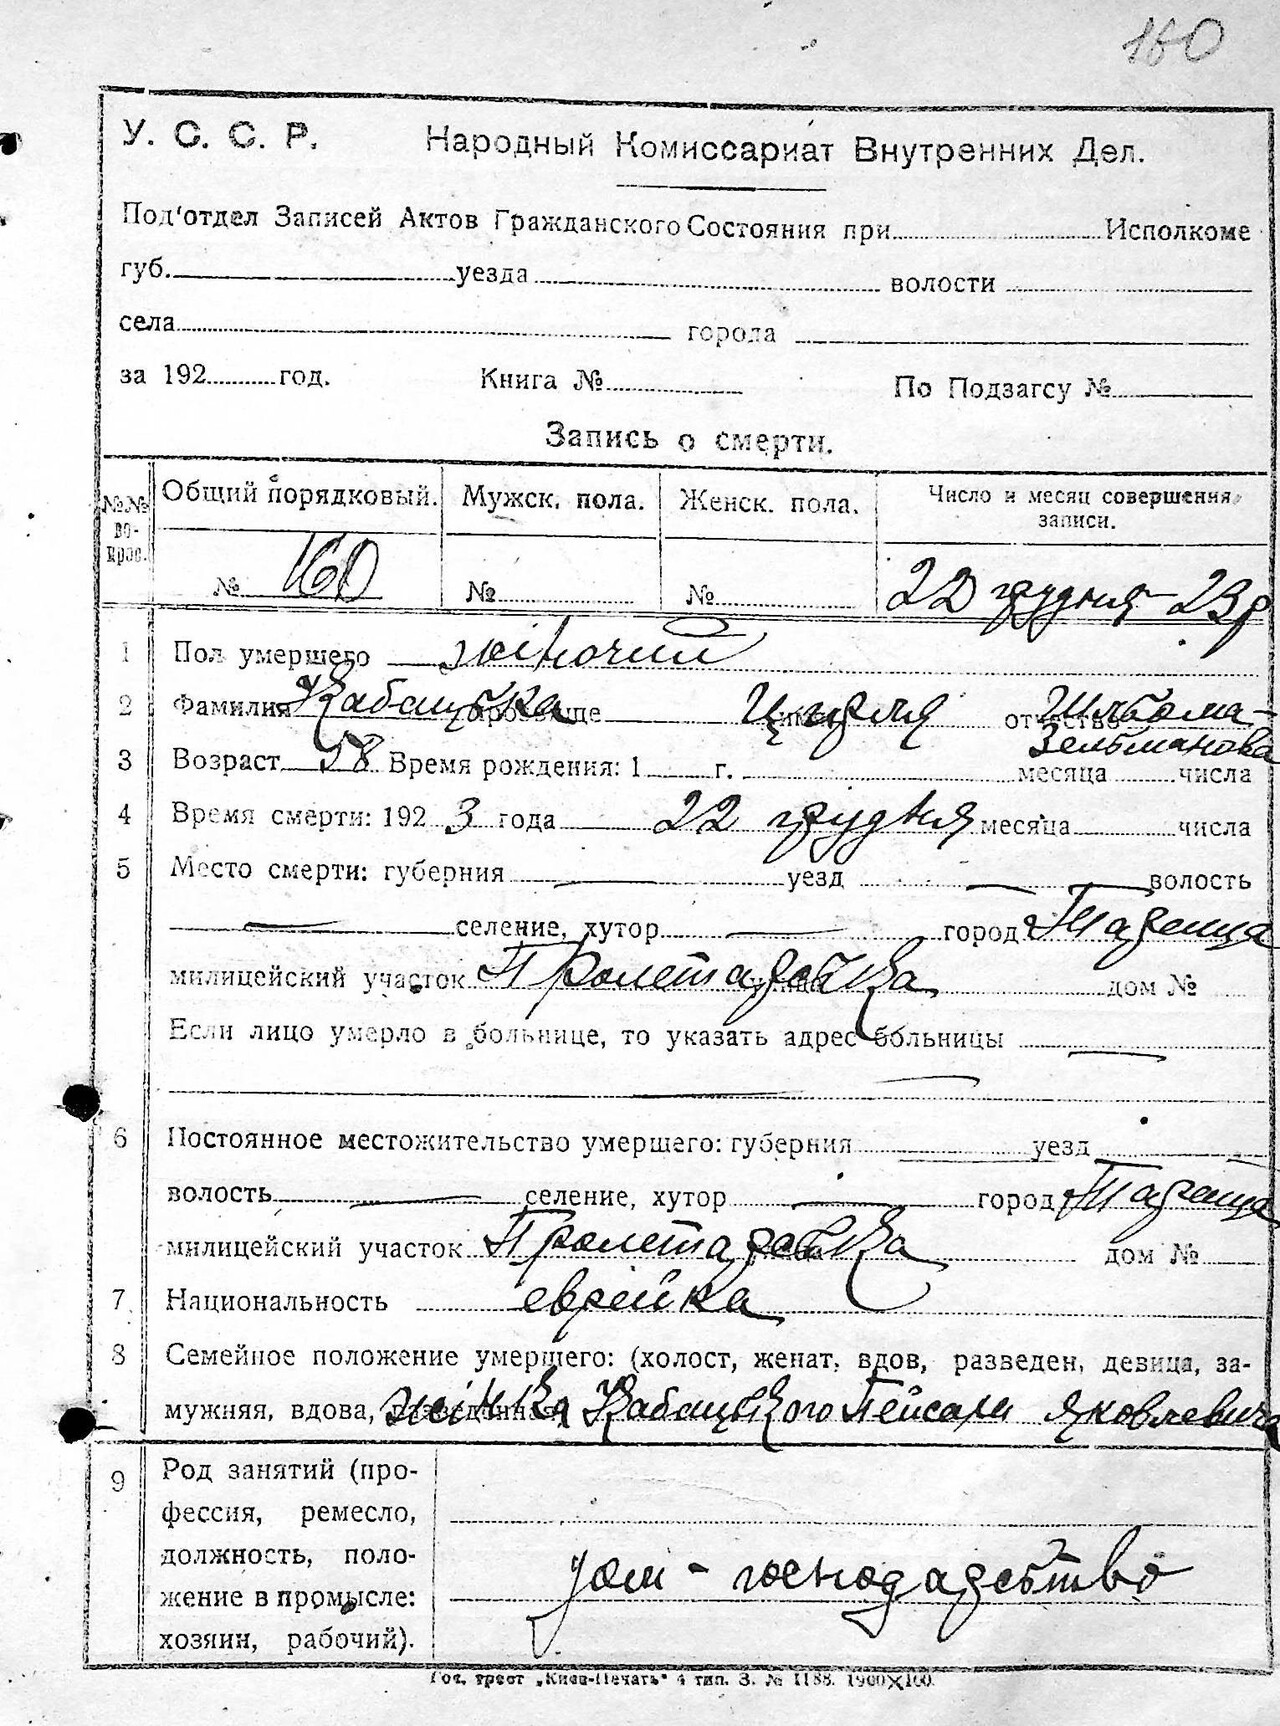 160
У. С. С. Р. Народный Комиссариат Внутренних Дел.
Под'отдел Записей Актов Гражданского Состояния при Исполкоме
губ. уезда волости
села города
за 192 год. Книга № По Подзагсу №
Запись о смерти.
№№ во-прос. Общий порядковый. Мужск. пола. Женск. пола. Число и месяц совершения записи.
№ 160 № № 22 грудня 23р
1 Пол умершего жіночий
2 Фамилия Кабацька прозвище имя Цирля отчество Шльома-
Зельманова
3 Возраст 58 Время рождения: 1 г. месяца числа
4 Время смерти: 192 3 года 22 грудня месяца числа
5 Место смерти: губерния уезд волость
селение, хутор город Тараща
милицейский участок Пролетарська дом №
Если лицо умерло в больнице, то указать адрес больницы
6 Постоянное местожительство умершего: губерния уезд
волость селение, хутор город Тараща
милицейский участок Пролетарська дом №
7 Национальность еврейка
8 Семейное положение умершего: (холост, женат, вдов, разведен, девица, за-
мужняя, вдова, разведенная жінка Кабацького Пейсаха Яковлевича
9 Род занятий (про-
фессия, ремесло,
должность, поло-
жение в промысле:
хозяин, рабочий).
дом-господарство
Гос. трест „Киев-Печать" 4 тип. З. № 1188. 1900×100.